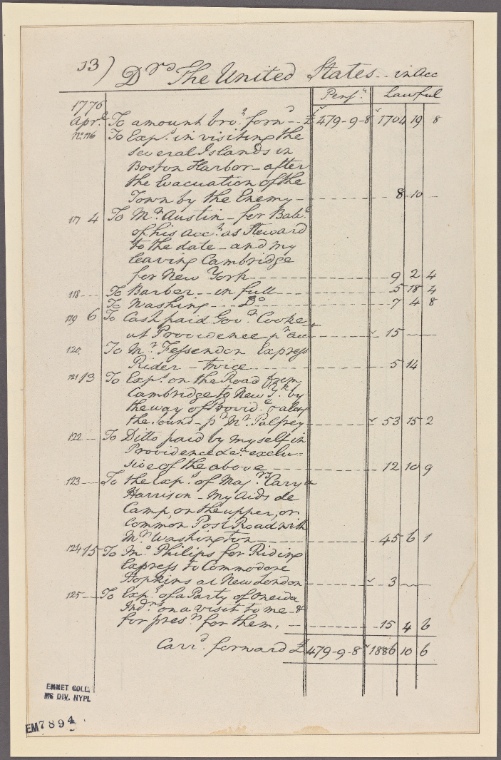 13) Drs The United States - in Acc
Pensa. Lawful
1776
Apr. To amount bro. forwd -- £479-9-8 1704 19 8
No. 116 To Exps. in visiting the
several Islands in
Boston Harbor - after
the evacuation of the
Town by the Enemy - 8 10 -
117 4 To Mr. Austin - for Bale.
of his acct. as Steward
to the date - and my
leaving Cambridge
for New York 9 2 4
118 To Barber - in full 5 18 4
To Washing - Do. 7 4 8
119 6 To Cash paid Govr. Cooke
at Providence pr. acc 15 -
120 To Mr. Fessendon Express
Rider - twice 5 14
121 13 To Exps. on the Road from
Cambridge to New Yk. by
the way of Provide. & along
the sound - pr. Mr. Palfrey 53 15 2
122 To Ditto paid by myself in
Providence &c. exclu-
sive of the above 12 10 9
123 To the Exps. of Majrs. Cary &
Harrison - my Aids de
Camp, on the upper, or
Common Post Road with
Mrs. Washington 45 6 1
124 15 To Mr. Philips for Riding
Express to Commodore
Hopkins at New London 3 -
125 To Exps. of a Party of Oneida
Indns. on a visit to me &
for presns. for them, - 15 4 6
Carrd. forward £ 479-9-8 1886 10 6
EMMET COLL.
MS DIV. NYPL
EM7894